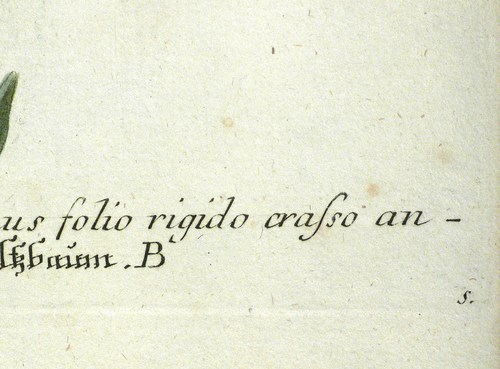 us folio rigido craſso an-
ſtzbaum. B
s.